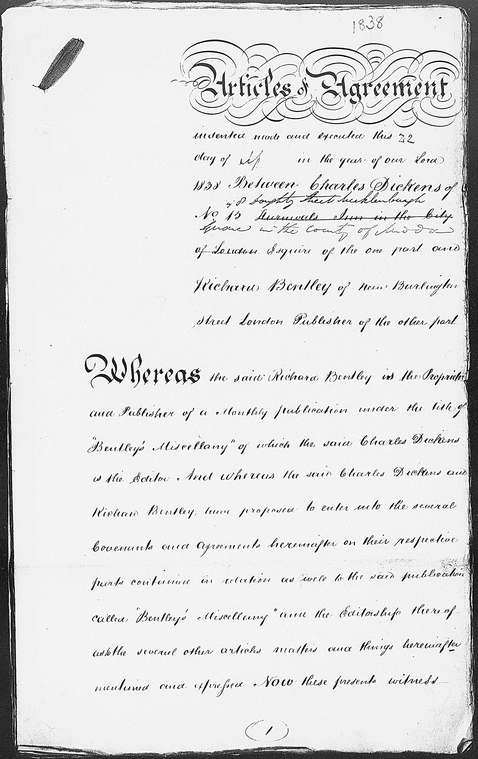 1838
Articles of Agreement
indented made and executed this 22
day of Sep in the year of our Lord
1838 Between Charles Dickens of
48 Doughty Street Mecklenburgh
No 15 Furnivals Inn in the City
Square in the County of Middx
of London Esquire of the one part and
Richard Bentley of New Burlington
Street London Publisher of the other part
Whereas the said Richard Bentley is the Proprietor
and Publisher of a Monthly publication under the title of
"Bentley's Miscellany" of which the said Charles Dickens
is the Editor And whereas the said Charles Dickens and
Richard Bentley, have proposed to enter into the several
Covenants and agreements hereinafter on their respective
parts contained in relation as well to the said publication
called "Bentley's Miscellany" and the Editorship thereof
as to the several other articles matters and things hereinafter
mentioned and expressed Now these presents witness
(1)